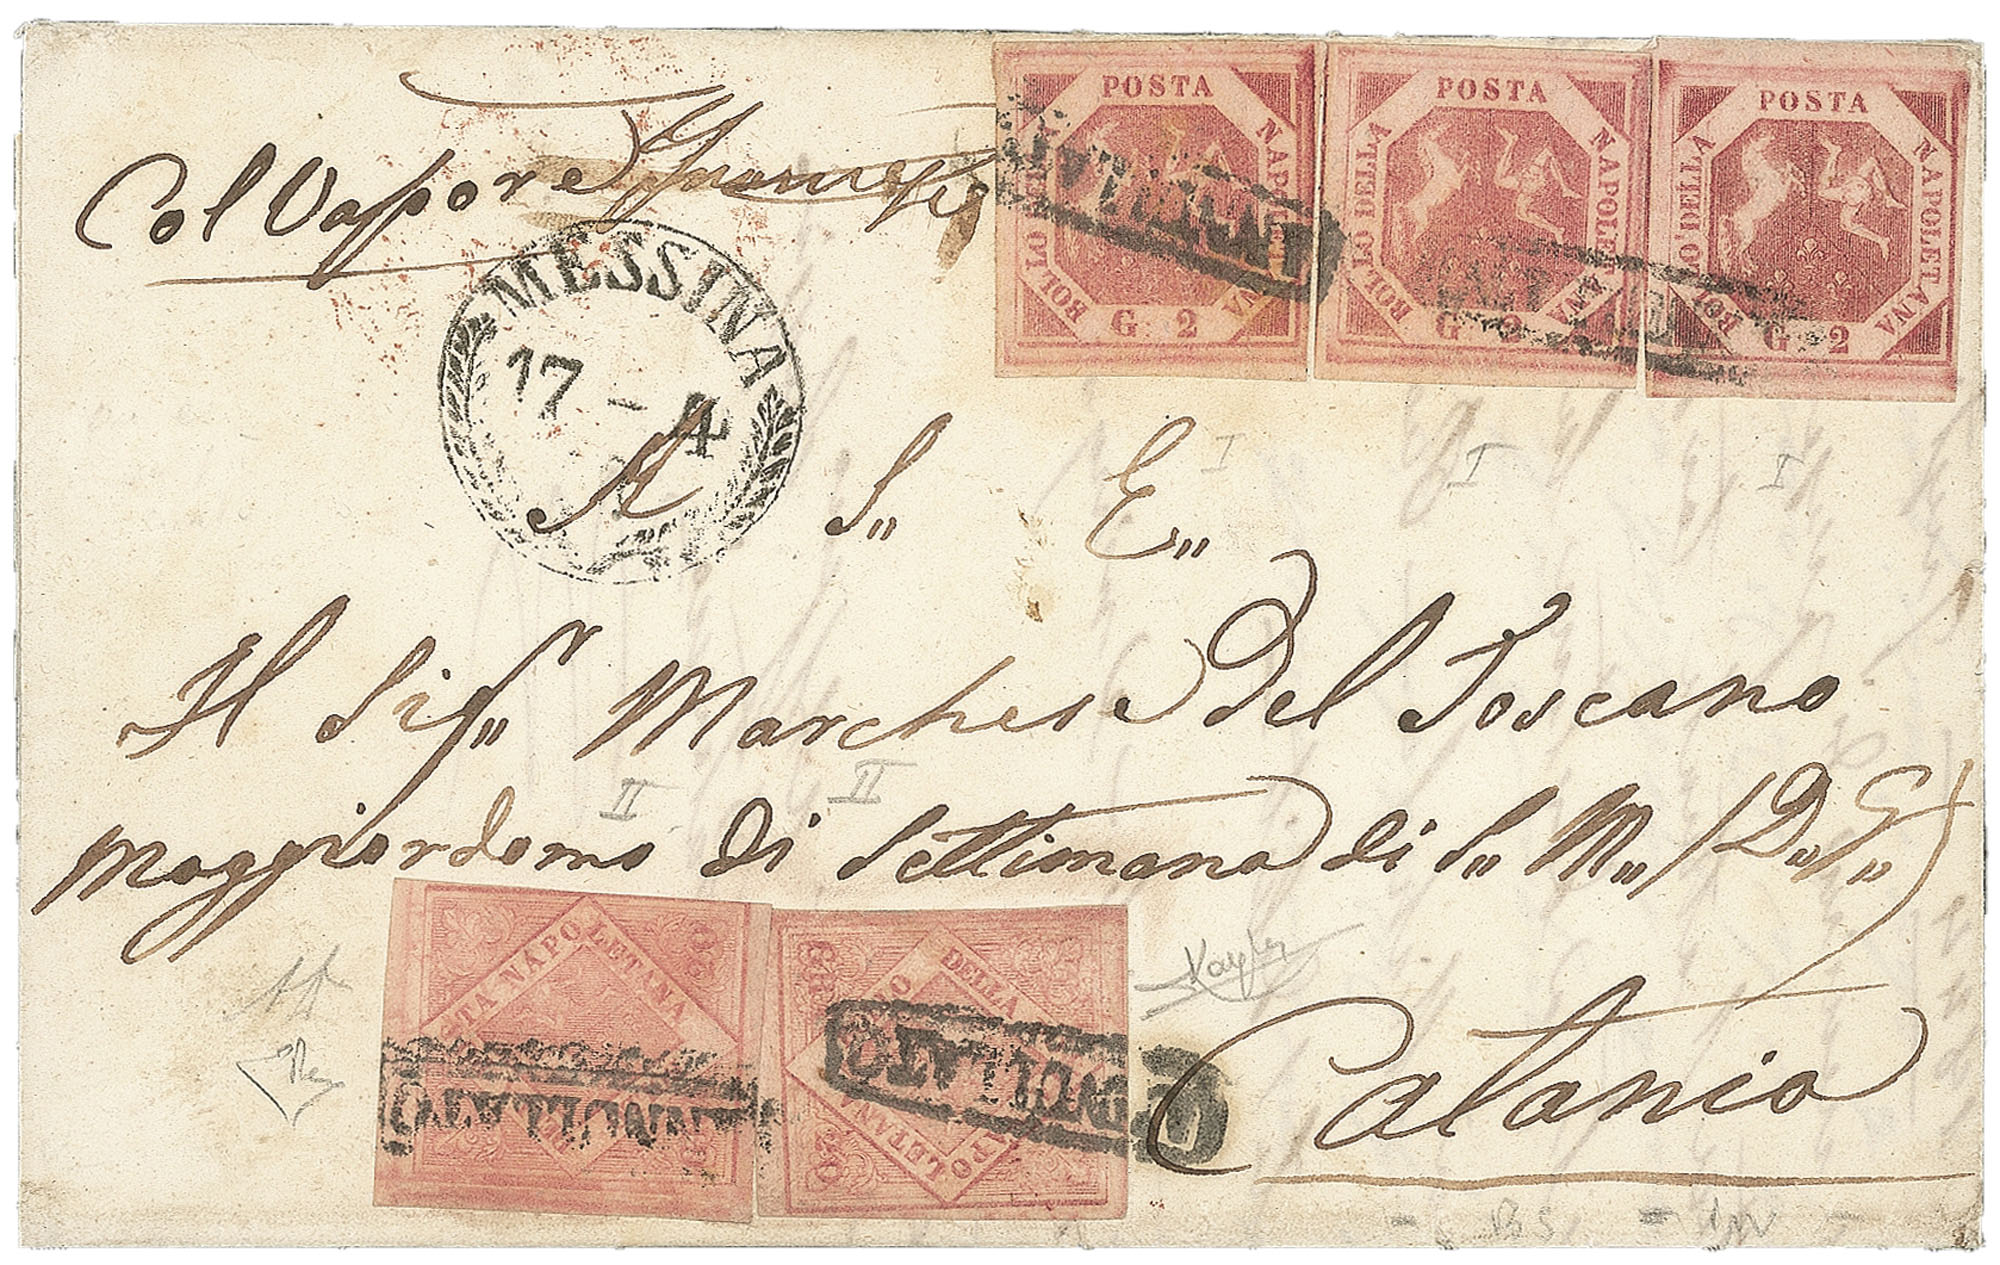 Col Vapore
POSTA NAPOLETANA BOLLO DELLA G 2
POSTA NAPOLETANA BOLLO DELLA G 2
POSTA NAPOLETANA BOLLO DELLA G 2
ANNULLATO
MESSINA
17 - 4
A S,, E,,
I I I
Il Sigr,, Marchese Del Toscano
II II
Maggiordomo di Settimana di S,, M,, (D,, G,,)
POSTA NAPOLETANA
DELLA NAPOLETANA
ANNULLATO
ANNULLATO
Catania